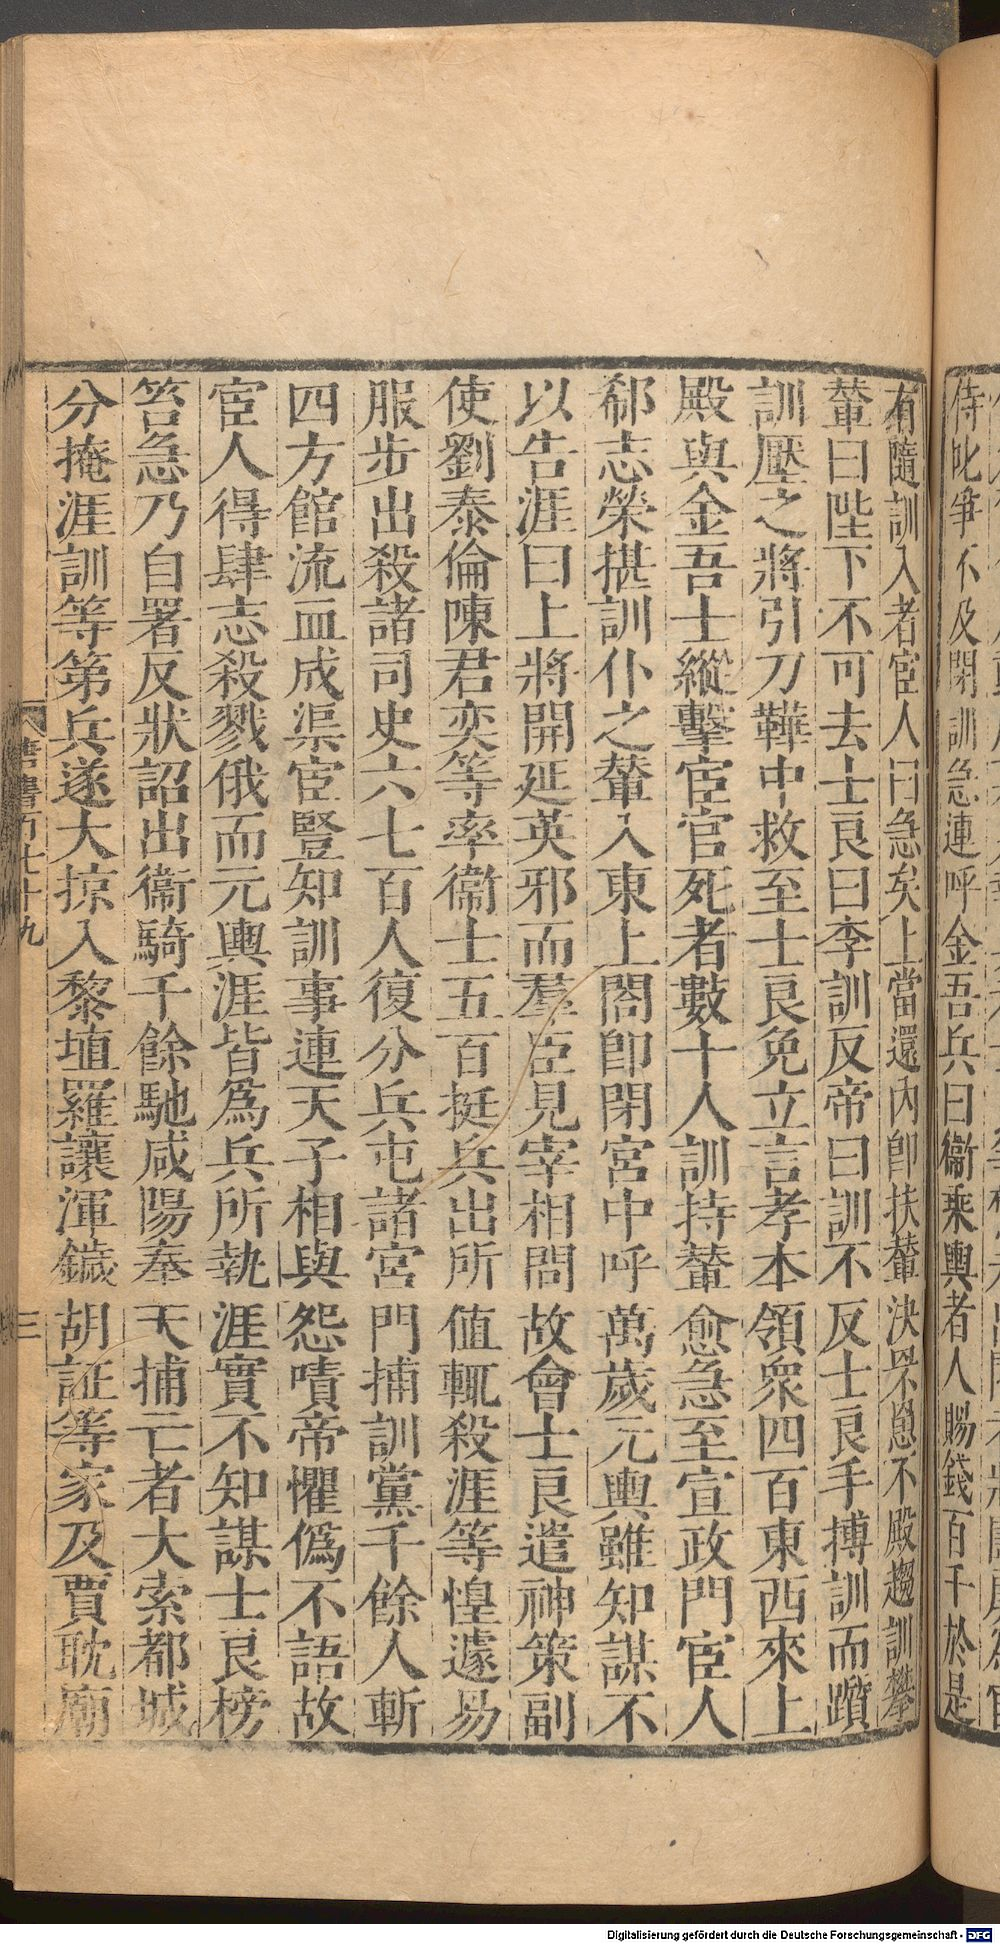 侍叱爭不及閉訓急連呼金吾兵曰衞乘輿者人賜錢百千於是
有隨訓入者宦人曰急矣上當還內卽扶輦決罘罳下殿趨訓攀
輦曰陛下不可去士良曰李訓反帝曰訓不反士良手搏訓而躓
訓壓之將引刀鞾中救至士良免立言孝本領衆四百東西來上
殿與金吾士縱擊宦官死者數十人訓持輦愈急至宣政門宦人
郗志榮揕訓仆之輦入東上閤卽閉宮中呼萬歲元輿雖知謀不
以告涯曰上將開延英邪而羣臣見宰相問故會士良遣神策副
使劉泰倫陳君奕等率衞士五百挺兵出所値輒殺涯等惶遽易
服步出殺諸司史六七百人復分兵屯諸宮門捕訓黨千餘人斬
四方館流血成渠宦豎知訓事連天子相與怨嘖帝懼僞不語故
宦人得肆志殺戮俄而元輿涯皆爲兵所執涯實不知謀士良榜
笞急乃自署反狀詔出衞騎千餘馳咸陽奉天捕亡者大索都城
分掩涯訓等第兵遂大掠入黎埴羅讓渾鐬胡証等家及賈耽廟
唐書百七十九
三
Digitalisierung gefördert durch die Deutsche Forschungsgemeinschaft - DFG